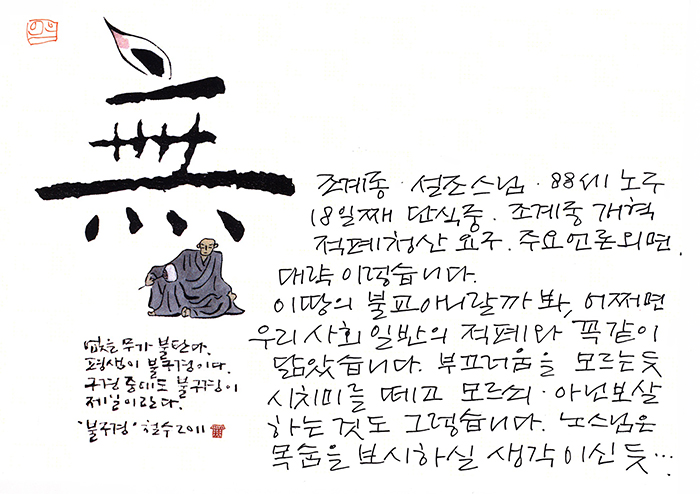 無
조계종·설조스님·88세 노구
18일째 단식중. 조계종 개혁
적폐청산 요구. 주요언론외면.
대략 이렇습니다.
이땅의 불교아니랄까 봐, 어쩌면
우리 사회 일반의 적폐와 꼭같이
닮았습니다. 부끄러움을 모르는듯
시치미를 떼고 모르쇠·아닌보살
하는 것도 그렇습니다. 노스님은
목숨을 보시하실 생각이신 듯…
없는 무가 불탄다.
평생이 불구경이다.
구경 중에도 불구경이
제일이란다.
'불구경' 철수 2011